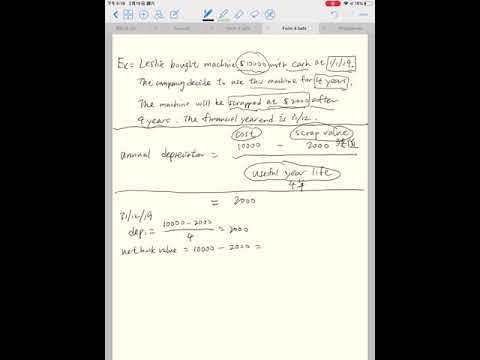 Form 4 bafs
Ex= Leslie bought machine $10000 with cash at 1/1/19.
The company decide to use this machine for 4 years.
The machine will be scrapped at $2000 after
4 years. The financial year end is 31/12.
cost scrap value
10000 - 2000
annual depreciation =
useful year life
4年
= 2000
31/12/19
dep. = 10000-2000 / 4 = 2000
net book value = 10000 - 2000 =